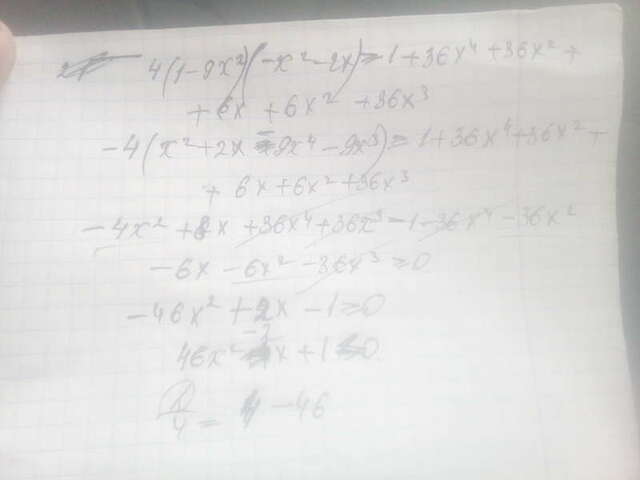 4(1-9x²)(-x²-2x)=1+36x⁴+36x²+
+6x+6x²+36x³
-4(x²+2x-9x⁴-9x³)=1+36x⁴+36x²+
+6x+6x²+36x³
-4x²+8x+36x⁴+36x³-1-36x⁴-36x²
-6x-6x²-36x³=0
-46x²+2x-1=0
46x²-2x+1=0
D/4=1-46